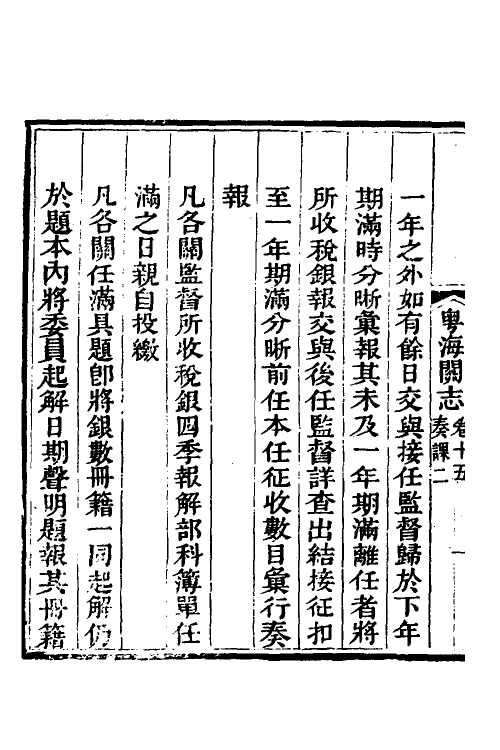 粵海關志 卷十五 奏課二 一
一年之外如有餘日交與接任監督歸於下年
期滿時分晣彙報其未及一年期滿離任者將
所收稅銀報交與後任監督詳查出結接征扣
至一年期滿分晣前任本任征收數目彙行奏
報
凡各關監督所收稅銀四季報解部科簿單任
滿之日親自投繳
凡各關任滿具題卽將銀數冊籍一同起解仍
於題本內將委員起解日期聲明題報其冊籍